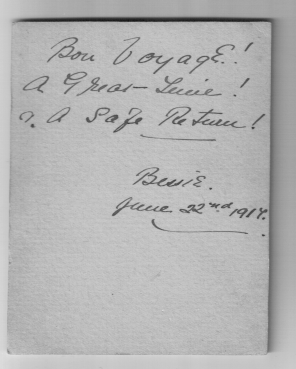 Bon Voyage!
A Great Time!
& A Safe Return!
Bessie.
June 22nd 1914.